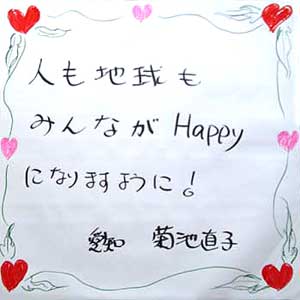 人も地球も
みんながHappy
になりますように!
愛知 菊池直子